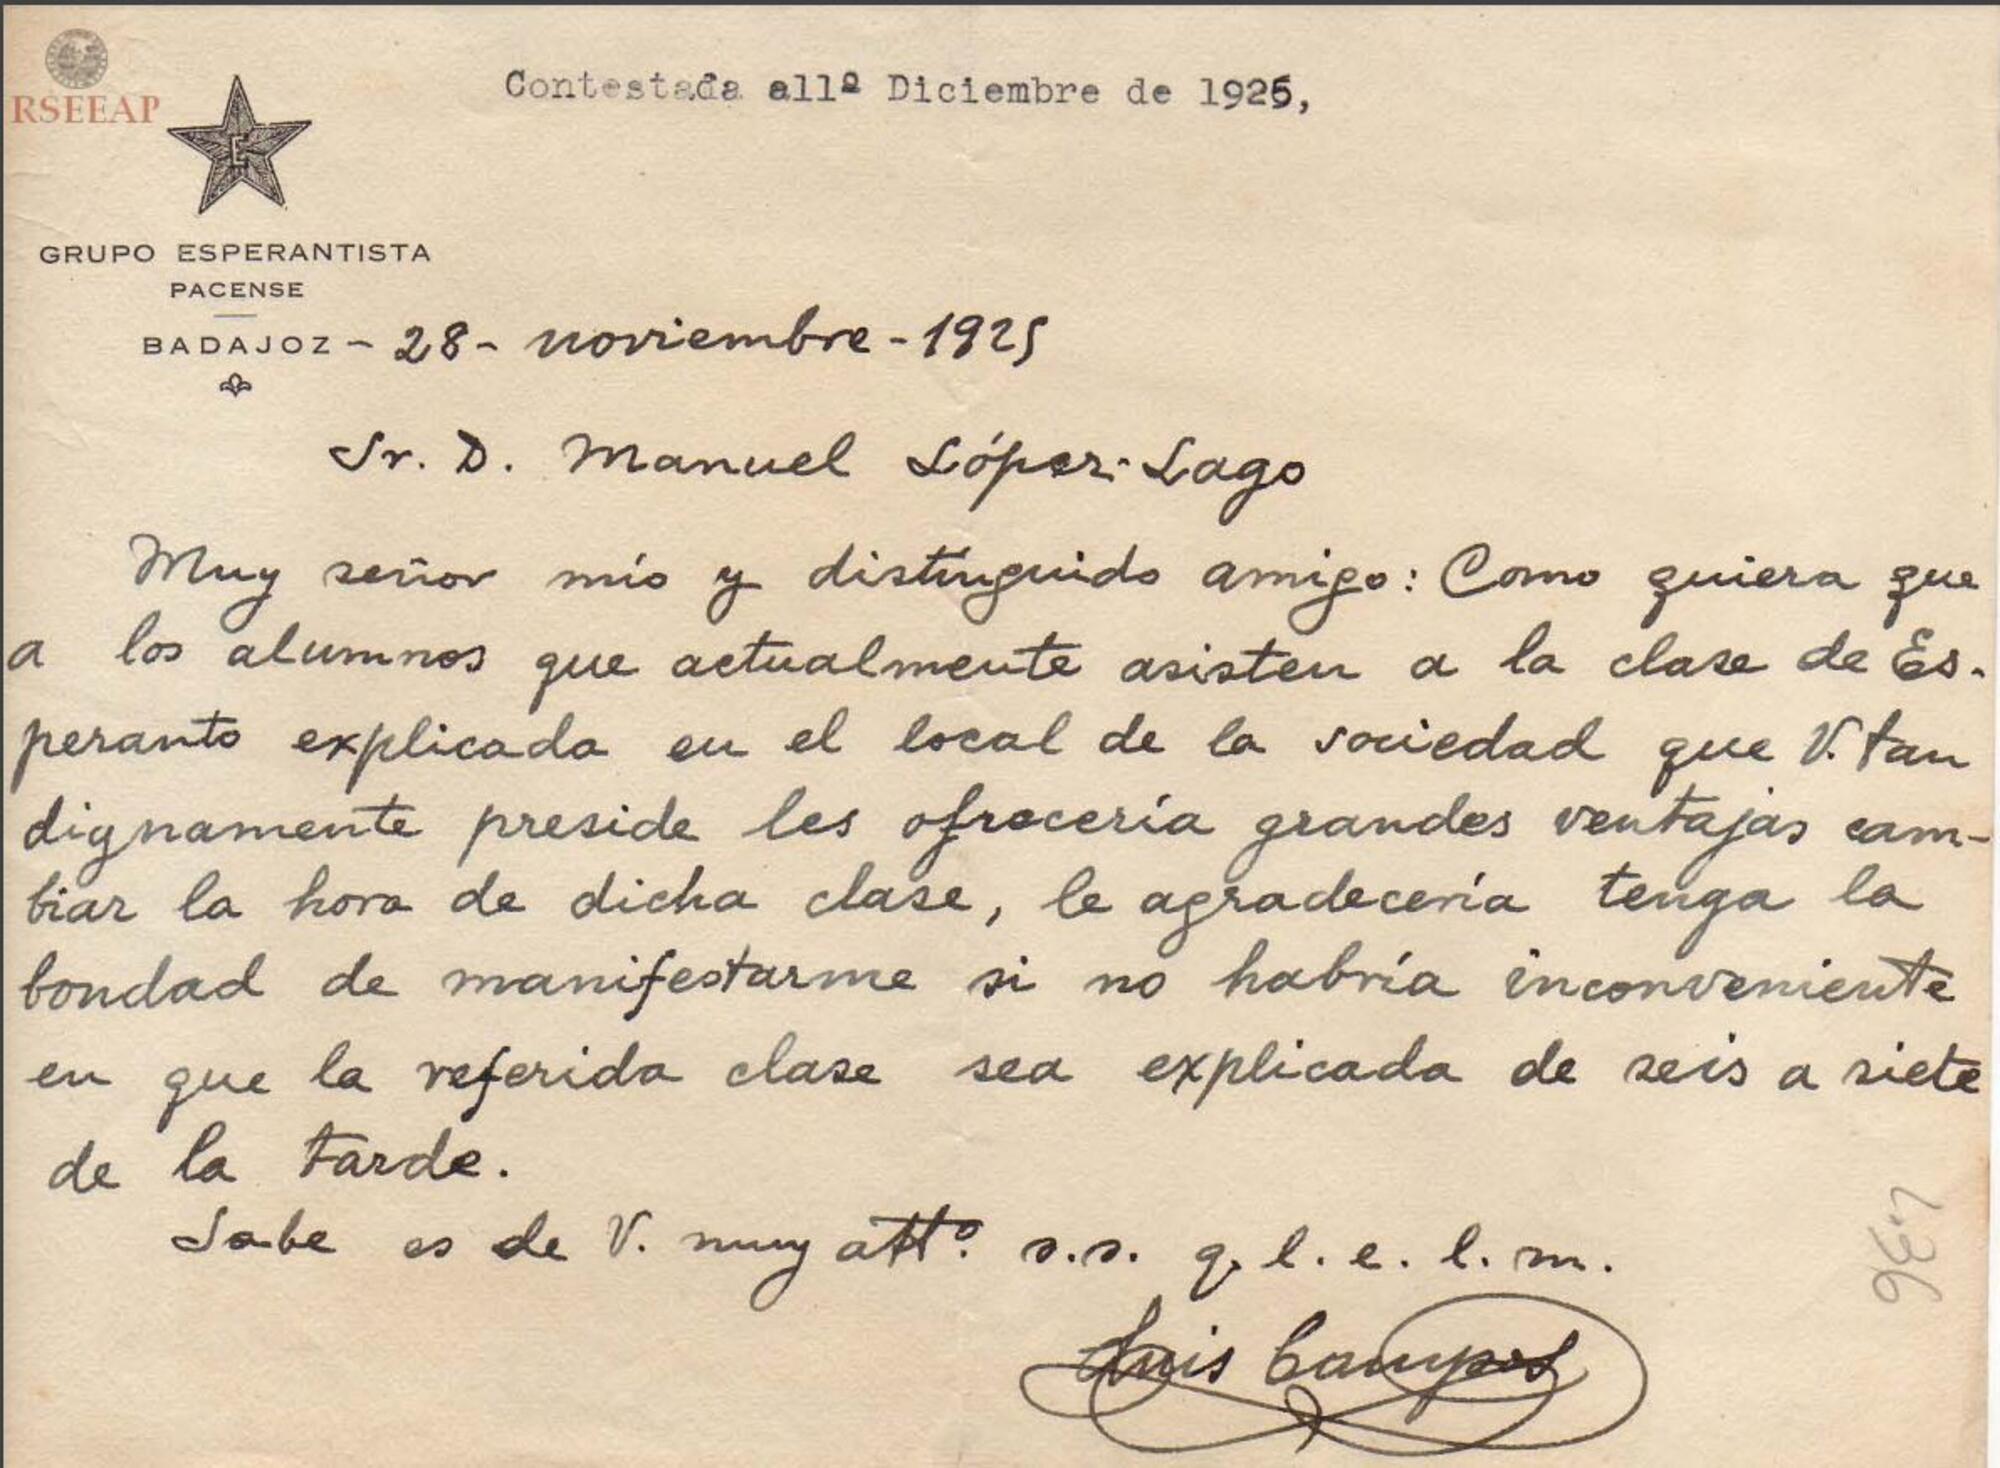 RSEEAP
Contestada el 1º Diciembre de 1925,
E
GRUPO ESPERANTISTA
PACENSE
BADAJOZ - 28 - noviembre - 1925
Sr. D. Manuel López-Lago
Muy señor mío y distinguido amigo: Como quiera que
a los alumnos que actualmente asisten a la clase de Es-
peranto explicada en el local de la sociedad que V. tan
dignamente preside les ofrecería grandes ventajas cam-
biar la hora de dicha clase, le agradecería tenga la
bondad de manifestarme si no habría inconveniente
en que la referida clase sea explicada de seis a siete
de la tarde.
Sabe es de V. muy attº. s.s. q. l. e. l. m.
Luis Campos